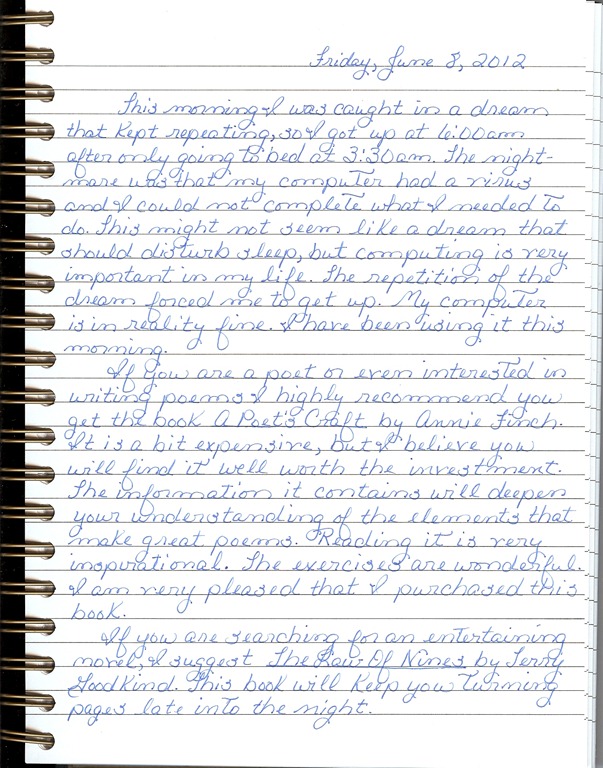 Friday, June 8, 2012
This morning I was caught in a dream
that kept repeating, so I got up at 6:00am
after only going to bed at 3:30am. The night-
mare was that my computer had a virus
and I could not complete what I needed to
do. This might not seem like a dream that
should disturb sleep, but computing is very
important in my life. The repetition of the
dream forced me to get up. My computer
is in reality fine. I have been using it this
morning.
If you are a poet or even interested in
writing poems I highly recommend you
get the book A Poet's Craft by Annie Finch.
It is a bit expensive, but I believe you
will find it well worth the investment.
The information it contains will deepen
your understanding of the elements that
make great poems. Reading it is very
inspirational. The exercises are wonderful.
I am very pleased that I purchased this
book.
If you are searching for an entertaining
novel, I suggest The Law Of Nines by Terry
Goodkind. This book will keep you turning
pages late into the night.